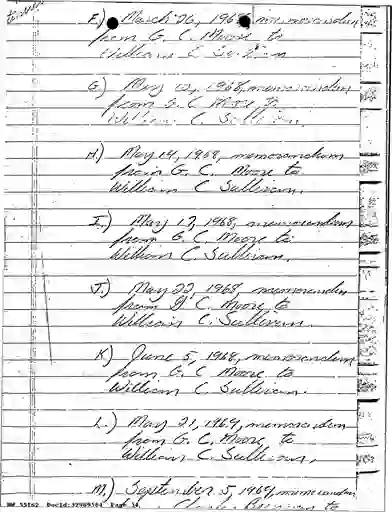 F.) March 26, 1968, memorandum
from G. C. Moore to
William C. Sullivan
G.) May 12, 1968, memorandum
from G. C. Moore to
William C. Sullivan.
H.) May 14, 1968, memorandum
from G. C. Moore to
William C. Sullivan.
I.) May 17, 1968, memorandum
from G. C. Moore to
William C. Sullivan.
J.) May 22, 1968 memorandum
from G. C. Moore to
William C. Sullivan.
K.) June 5, 1968, memorandum
from G. C. Moore to
William C. Sullivan.
L.) May 21, 1969, memorandum
from G. C. Moore, to
William C. Sullivan,
M.) September 5, 1969, memorandum
to
HW 55162 DocId:32989504 Page